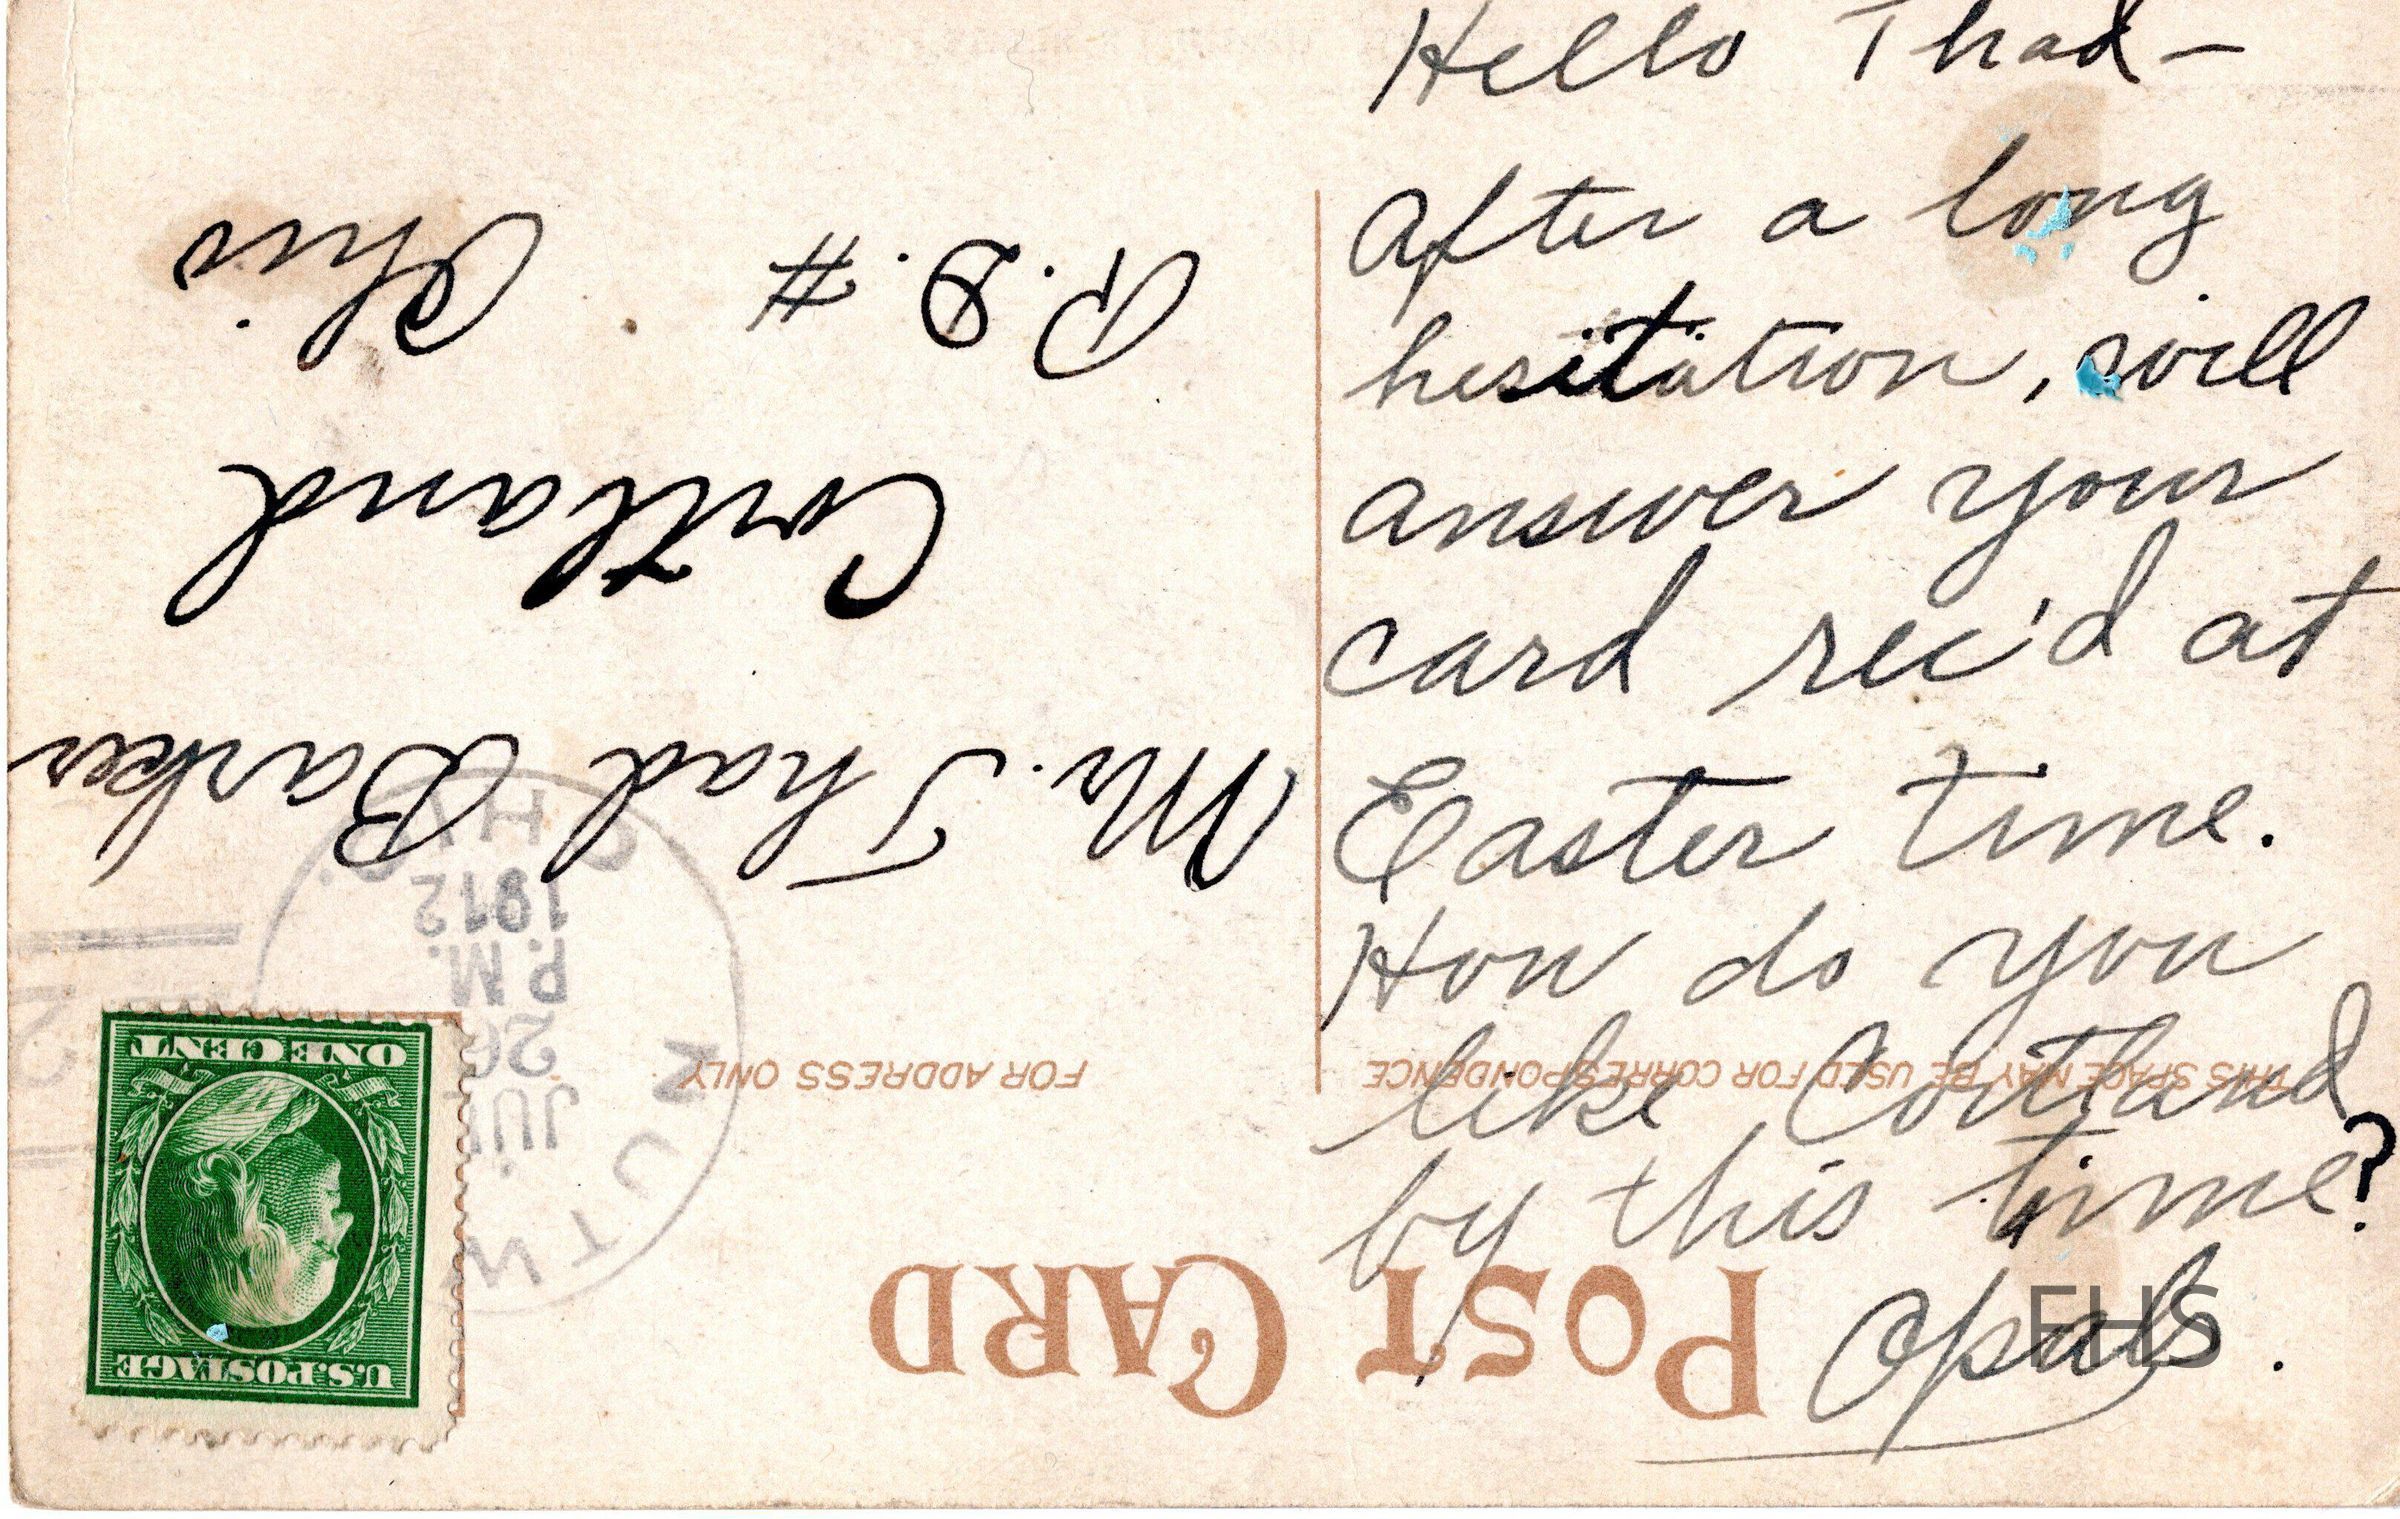 Hello Thad-
After a long
hesitation, will
answer your
card rec'd at
Easter time.
How do you
like Cortland
by this time?
Opal.
EHS
POST CARD
THIS SPACE MAY BE USED FOR CORRESPONDENCE
FOR ADDRESS ONLY
U.S.POSTAGE
ONE CENT
P.M.
1912
Mr. Thad Barker
Cortland
R.D.# Ohio